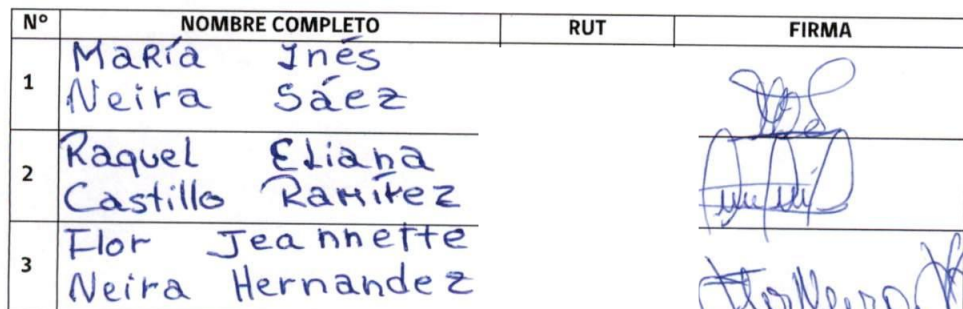 Nº NOMBRE COMPLETO RUT FIRMA
1
María Inés
Neira Sáez
2
Raquel Eliana
Castillo Ramírez
3
Flor Jeannette
Neira Hernandez